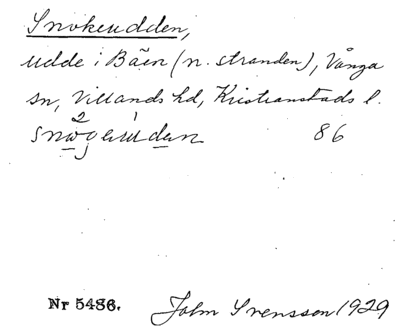 Snokeudden,
udde i Båen (n. stranden), Vånga
sn, Villands hd, Kristianstads l.
86
Nr 5436.
John Svensson 1929